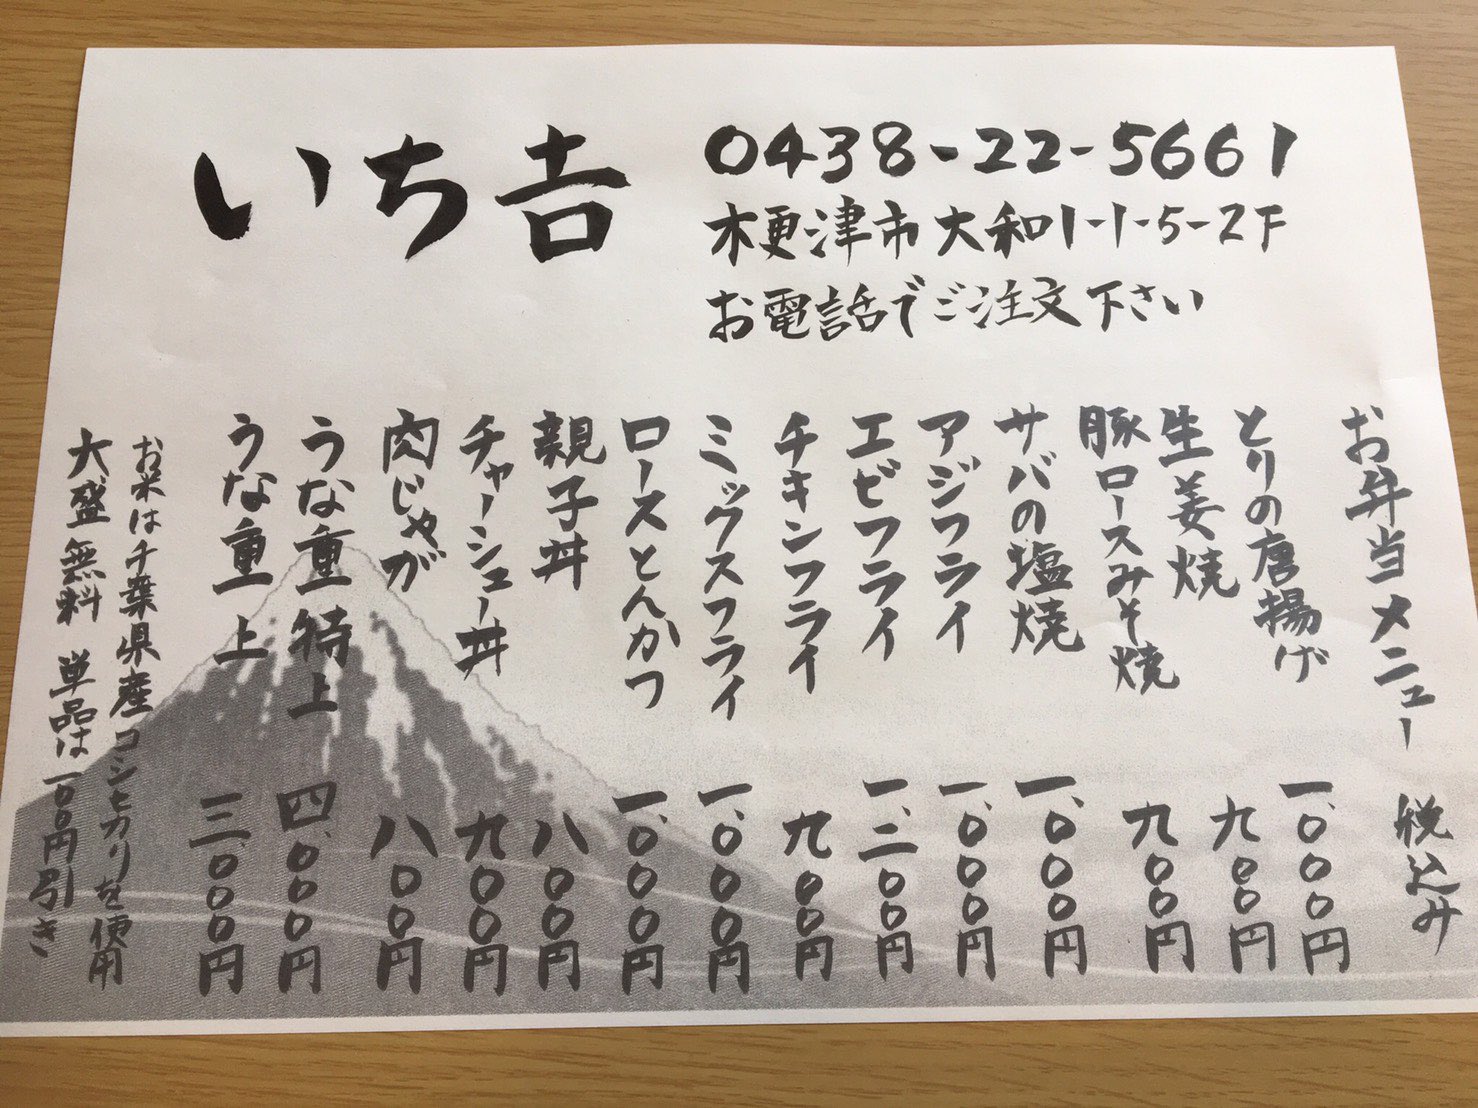 いち𠮷
0438-22-5661
木更津市大和1-1-5-2F
お電話でご注文下さい
お弁当メニュー 税込み
とりの唐揚げ 一、〇〇〇円
生姜焼 九〇〇円
豚ロースみそ焼 九〇〇円
サバの塩焼 一、〇〇〇円
アジフライ 一、〇〇〇円
エビフライ 一、二〇〇円
チキンフライ 九〇〇円
ミックスフライ 一、〇〇〇円
ロースとんかつ 一、〇〇〇円
親子丼 八〇〇円
チャーシュー丼 九〇〇円
肉じゃが 八〇〇円
うな重 特上 四、〇〇〇円
うな重 上 三、〇〇〇円
お米は千葉県産コシヒカリを使用
大盛無料 単品は一〇〇円引き